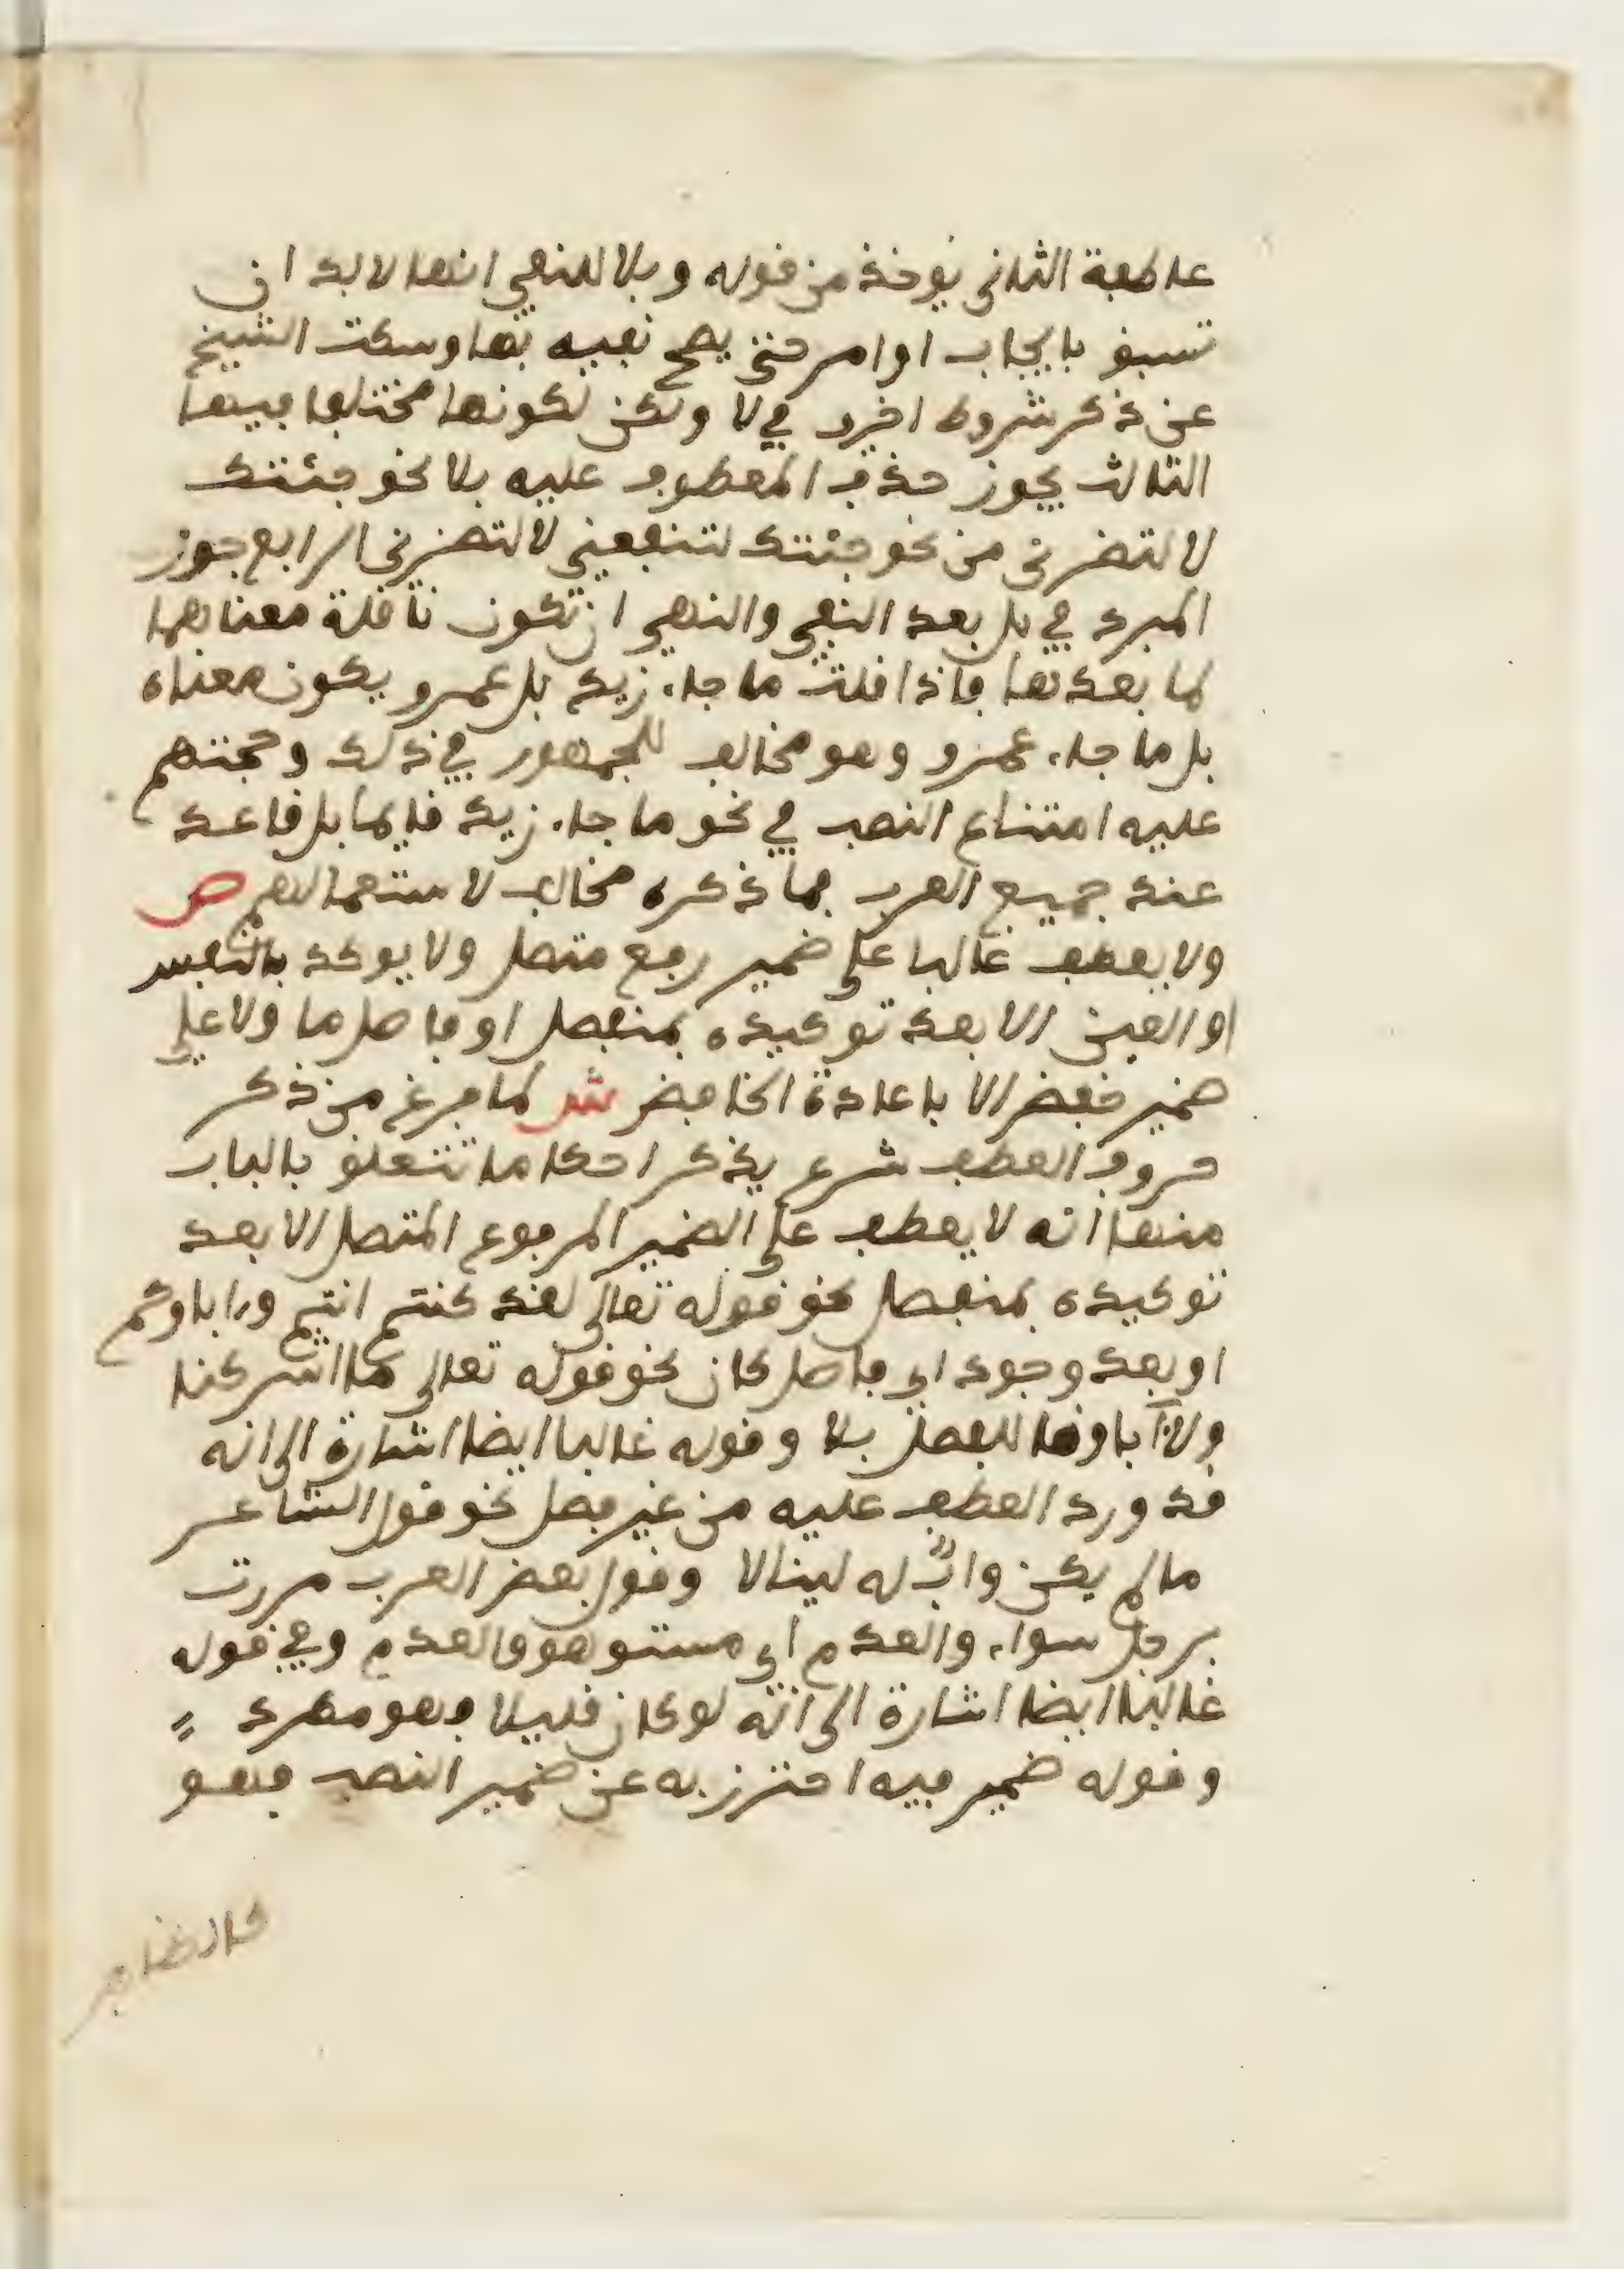 عاطفة الثاني يوخذ من قوله وبلا للنفي انها لا بد ان
تسبق بايجاب او امر حتى يصح نفيه بها وسكت الشيخ
عن ذكر شروط اخرى في لا ولكن لكونها مختلفا فيها
الثالث يجوز حذف المعطوف عليه بلا نحو جئتك
لا لتضرني من نحو جئتك لتنفعني لا لتضرني الرابع جوز
المبرد في بل بعد النفي والنهي ان تكون ناقلة معناهما
لما بعدها فاذا قلت ما جاء زيد بل عمرو يكون معناه
بل ما جاء عمرو وهو مخالف للجمهور في ذلك وحجتهم
عليه امتناع النصب في نحو ما جاء زيد قايما بل قاعد
عند جميع العرب فما ذكره مخالف لاستعمالهم ص
ولا يعطف غالبا على ضمير رفع متصل ولا يوكد بالنفس
او العين الا بعد توكيده بمنفصل او فاصل ما ولا على
ضمير خفض الا باعادة الخافض ش لما فرغ من ذكر
حروف العطف شرع يذكر احكاما تتعلق بالباب
منها انه لا يعطف على الضمير المرفوع المتصل الا بعد
توكيده بمنفصل نحو قوله تعالى لقد كنتم انتم وءاباوكم
او بعد وجود اي فاصل كان نحو قوله تعالى ما اشركنا
ولا ءاباونا للفصل بلا وقوله غالبا ايضا اشارة الى انه
قد ورد العطف عليه من غير فصل نحو قول الشاعر
ما لم يكن وابٌ له لينالا وقول بعض العرب مررت
برجل سواء والعدم اي مستو هو والعدم وفي قوله
غالبا ايضا اشارة الى انه لو كان قليلا فهو مطرد
وقوله ضمير فيه احترز به عن ضمير النصب فهو
كالظاهر